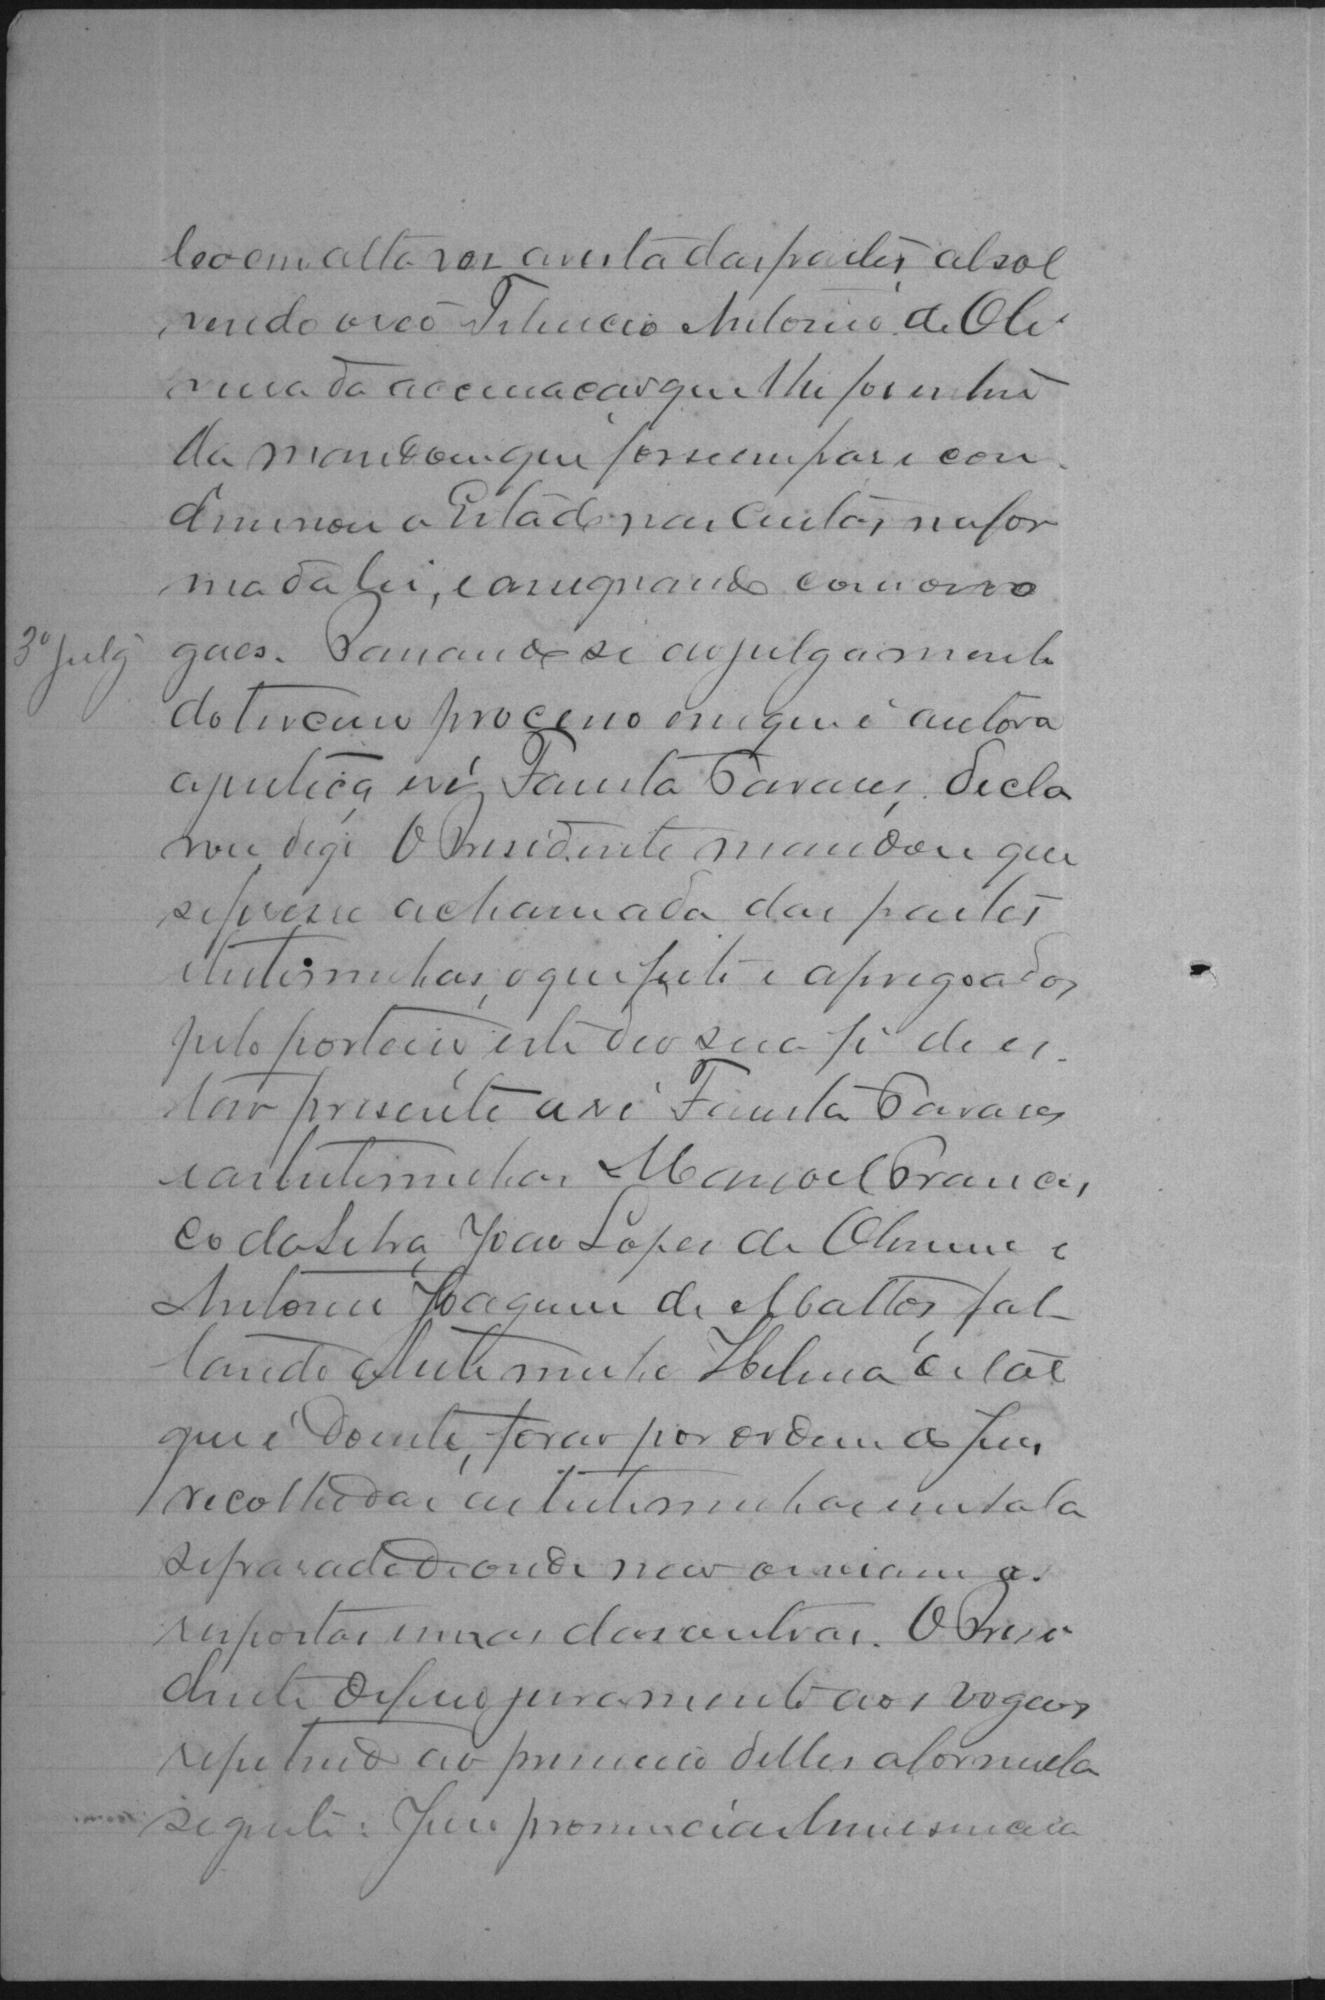 leo em alta voz a vista das partes, absol
vendo o reo Antonio de Oli
veira da accusação que lhe foi inten
da mandou que fosse em paz e con
demnou o Estado nas custas na for
ma da lei, e assignando com os vo
3º Julgº gaes. Passando se ao julgamento
do terceiro processo em que é autora
a justiça e ré Fausta Tavares, decla
rou digo O Presidente mandou que
se fizesse a chamada das partes
e testimunhas, o que feito e apregoados
pelo porteiro, este deo sua fé de es
tar presente a ré Fausta Tavares
e as testimunhas Manoel Francis
co da Silva, João Lopes de Oliveira e
Antonio Joaquim de Mattos fal
tando a testimunha Helena de tal
que é doente, forão por ordem do Juiz
recolhidas as testimunhas em sala
separada d'onde não ouvissem as
respostas umas das outras. O Presi
dente deferio juramento aos vogaes
repetindo ao primeiro delles a formula
seguinte: Juro pronunciar